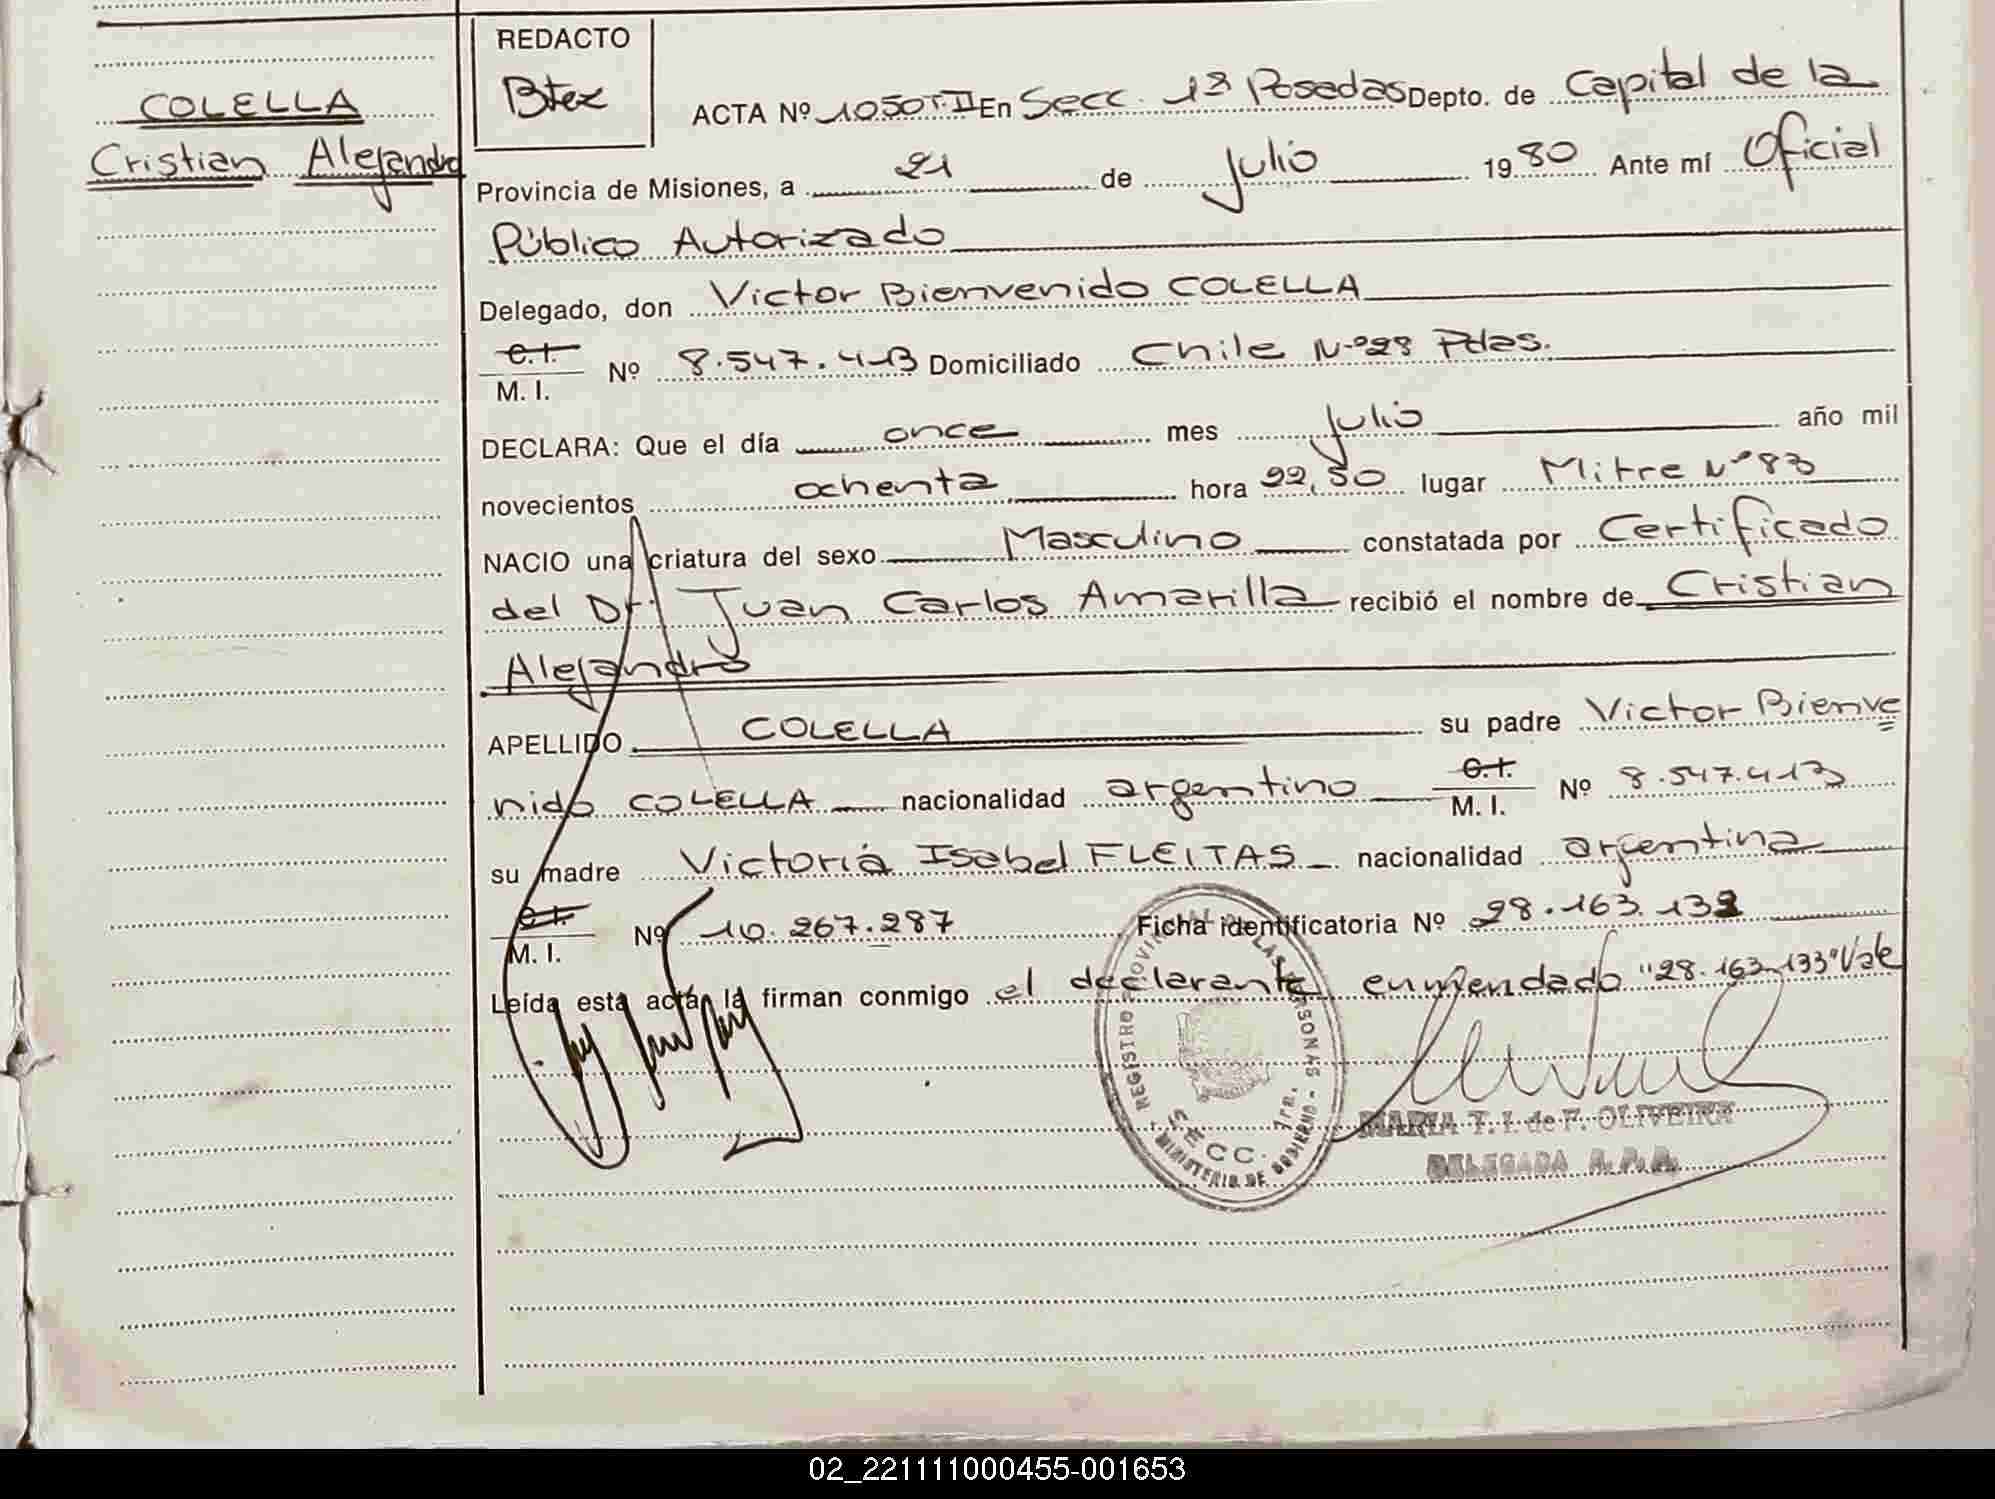 COLELLA
Cristian Alejandro
REDACTO
Btez
ACTA Nº 1050 T.II En Secc. 1ª Posadas Depto. de Capital de la
Provincia de Misiones, a 21 de Julio 1980 Ante mí Oficial
Público Autorizado
Delegado, don Victor Bienvenido COLELLA
C.I.
M. I. Nº 8.547.413 Domiciliado Chile Nº 28 Pdas.
DECLARA: Que el día once mes Julio año mil
novecientos ochenta hora 22,50 lugar Mitre Nº 83
NACIO una criatura del sexo Masculino constatada por Certificado
del Dr. Juan Carlos Amarilla recibió el nombre de Cristian
Alejandro
APELLIDO COLELLA su padre Victor Bienve
nido COLELLA nacionalidad argentino C.I. M. I. Nº 8.547.413
su madre Victoria Isabel FLEITAS nacionalidad argentina
C.I.
M. I. Nº 10.267.287 Ficha identificatoria Nº 28.163.133
Leída esta acta, la firman conmigo el declarante enmendado "28.163.133" Vale
REGISTRO PROVINCIAL DE LAS PERSONAS
SECC. 1ra.
MINISTERIO DE GOBIERNO
MARIA T. I. de F. OLIVEIRA
DELEGADA
02_221111000455-001653